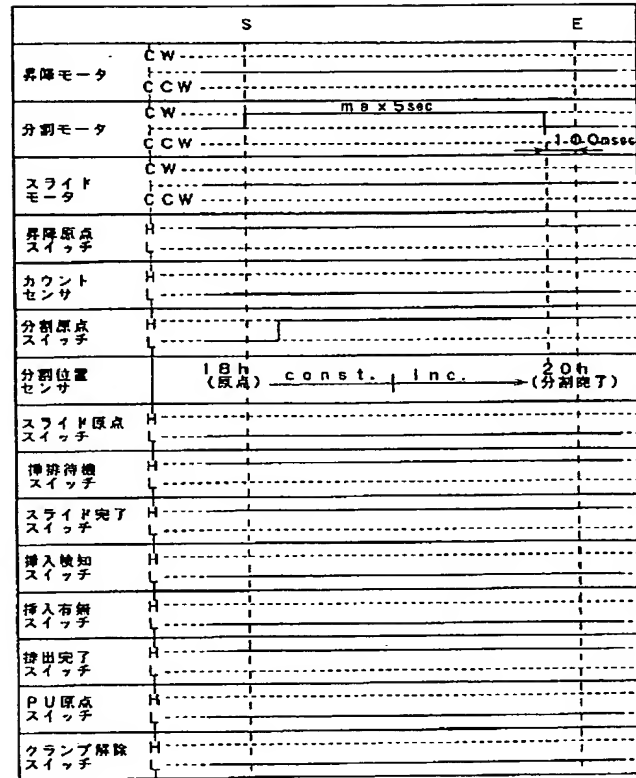 S E
昇降モータ CW
CCW
分割モータ CW max 5sec
CCW 100msec
スライド
モータ CW
CCW
昇降原点
スイッチ H
L
カウント
センサ H
L
分割原点
スイッチ H
L
分割位置
センサ 18h (原点) const. inc. 20h (分割完了)
スライド原点
スイッチ H
L
挿排待機
スイッチ H
L
スライド完了
スイッチ H
L
挿入検知
スイッチ H
L
挿入有無
スイッチ H
L
排出完了
スイッチ H
L
PU原点
スイッチ H
L
クランプ解除
スイッチ H
L